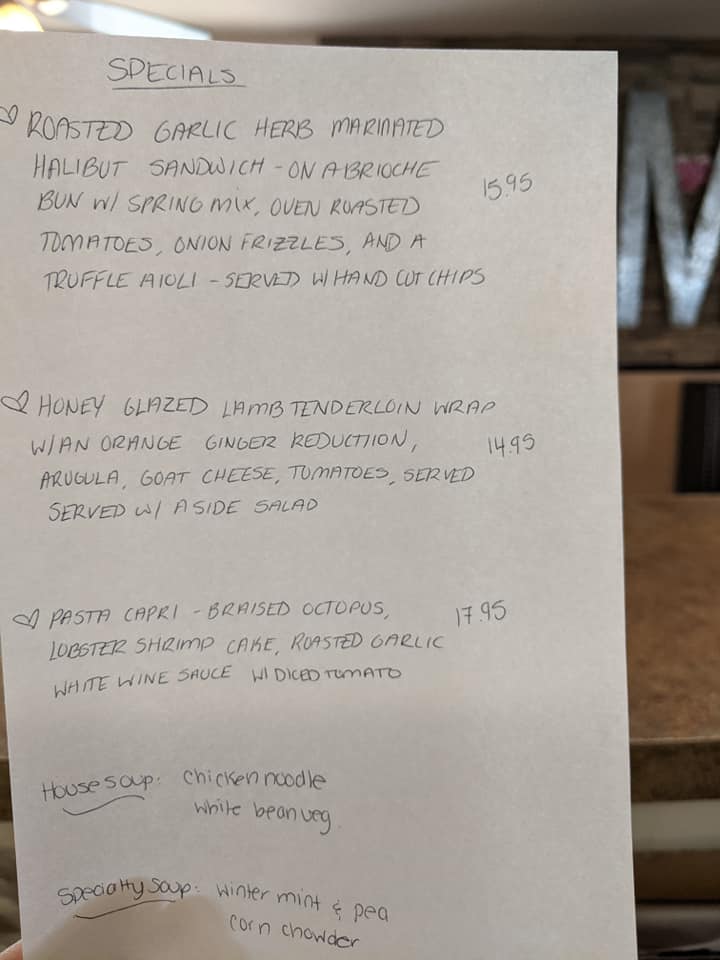 SPECIALS
♡ ROASTED GARLIC HERB MARINATED
HALIBUT SANDWICH - ON A BRIOCHE
BUN W/ SPRING MIX, OVEN ROASTED
15.95
TOMATOES, ONION FRIZZLES, AND A
TRUFFLE AIOLI - SERVED W/ HAND CUT CHIPS
♡ HONEY GLAZED LAMB TENDERLOIN WRAP
W/ AN ORANGE GINGER REDUCTIION,
14.95
ARUGULA, GOAT CHEESE, TOMATOES, SERVED
SERVED W/ A SIDE SALAD
♡ PASTA CAPRI - BRAISED OCTOPUS,
17.95
LOBSTER SHRIMP CAKE, ROASTED GARLIC
WHITE WINE SAUCE W/ DICED TOMATO
House soup: chicken noodle
white bean veg.
Specialty soup: winter mint & pea
corn chowder
M